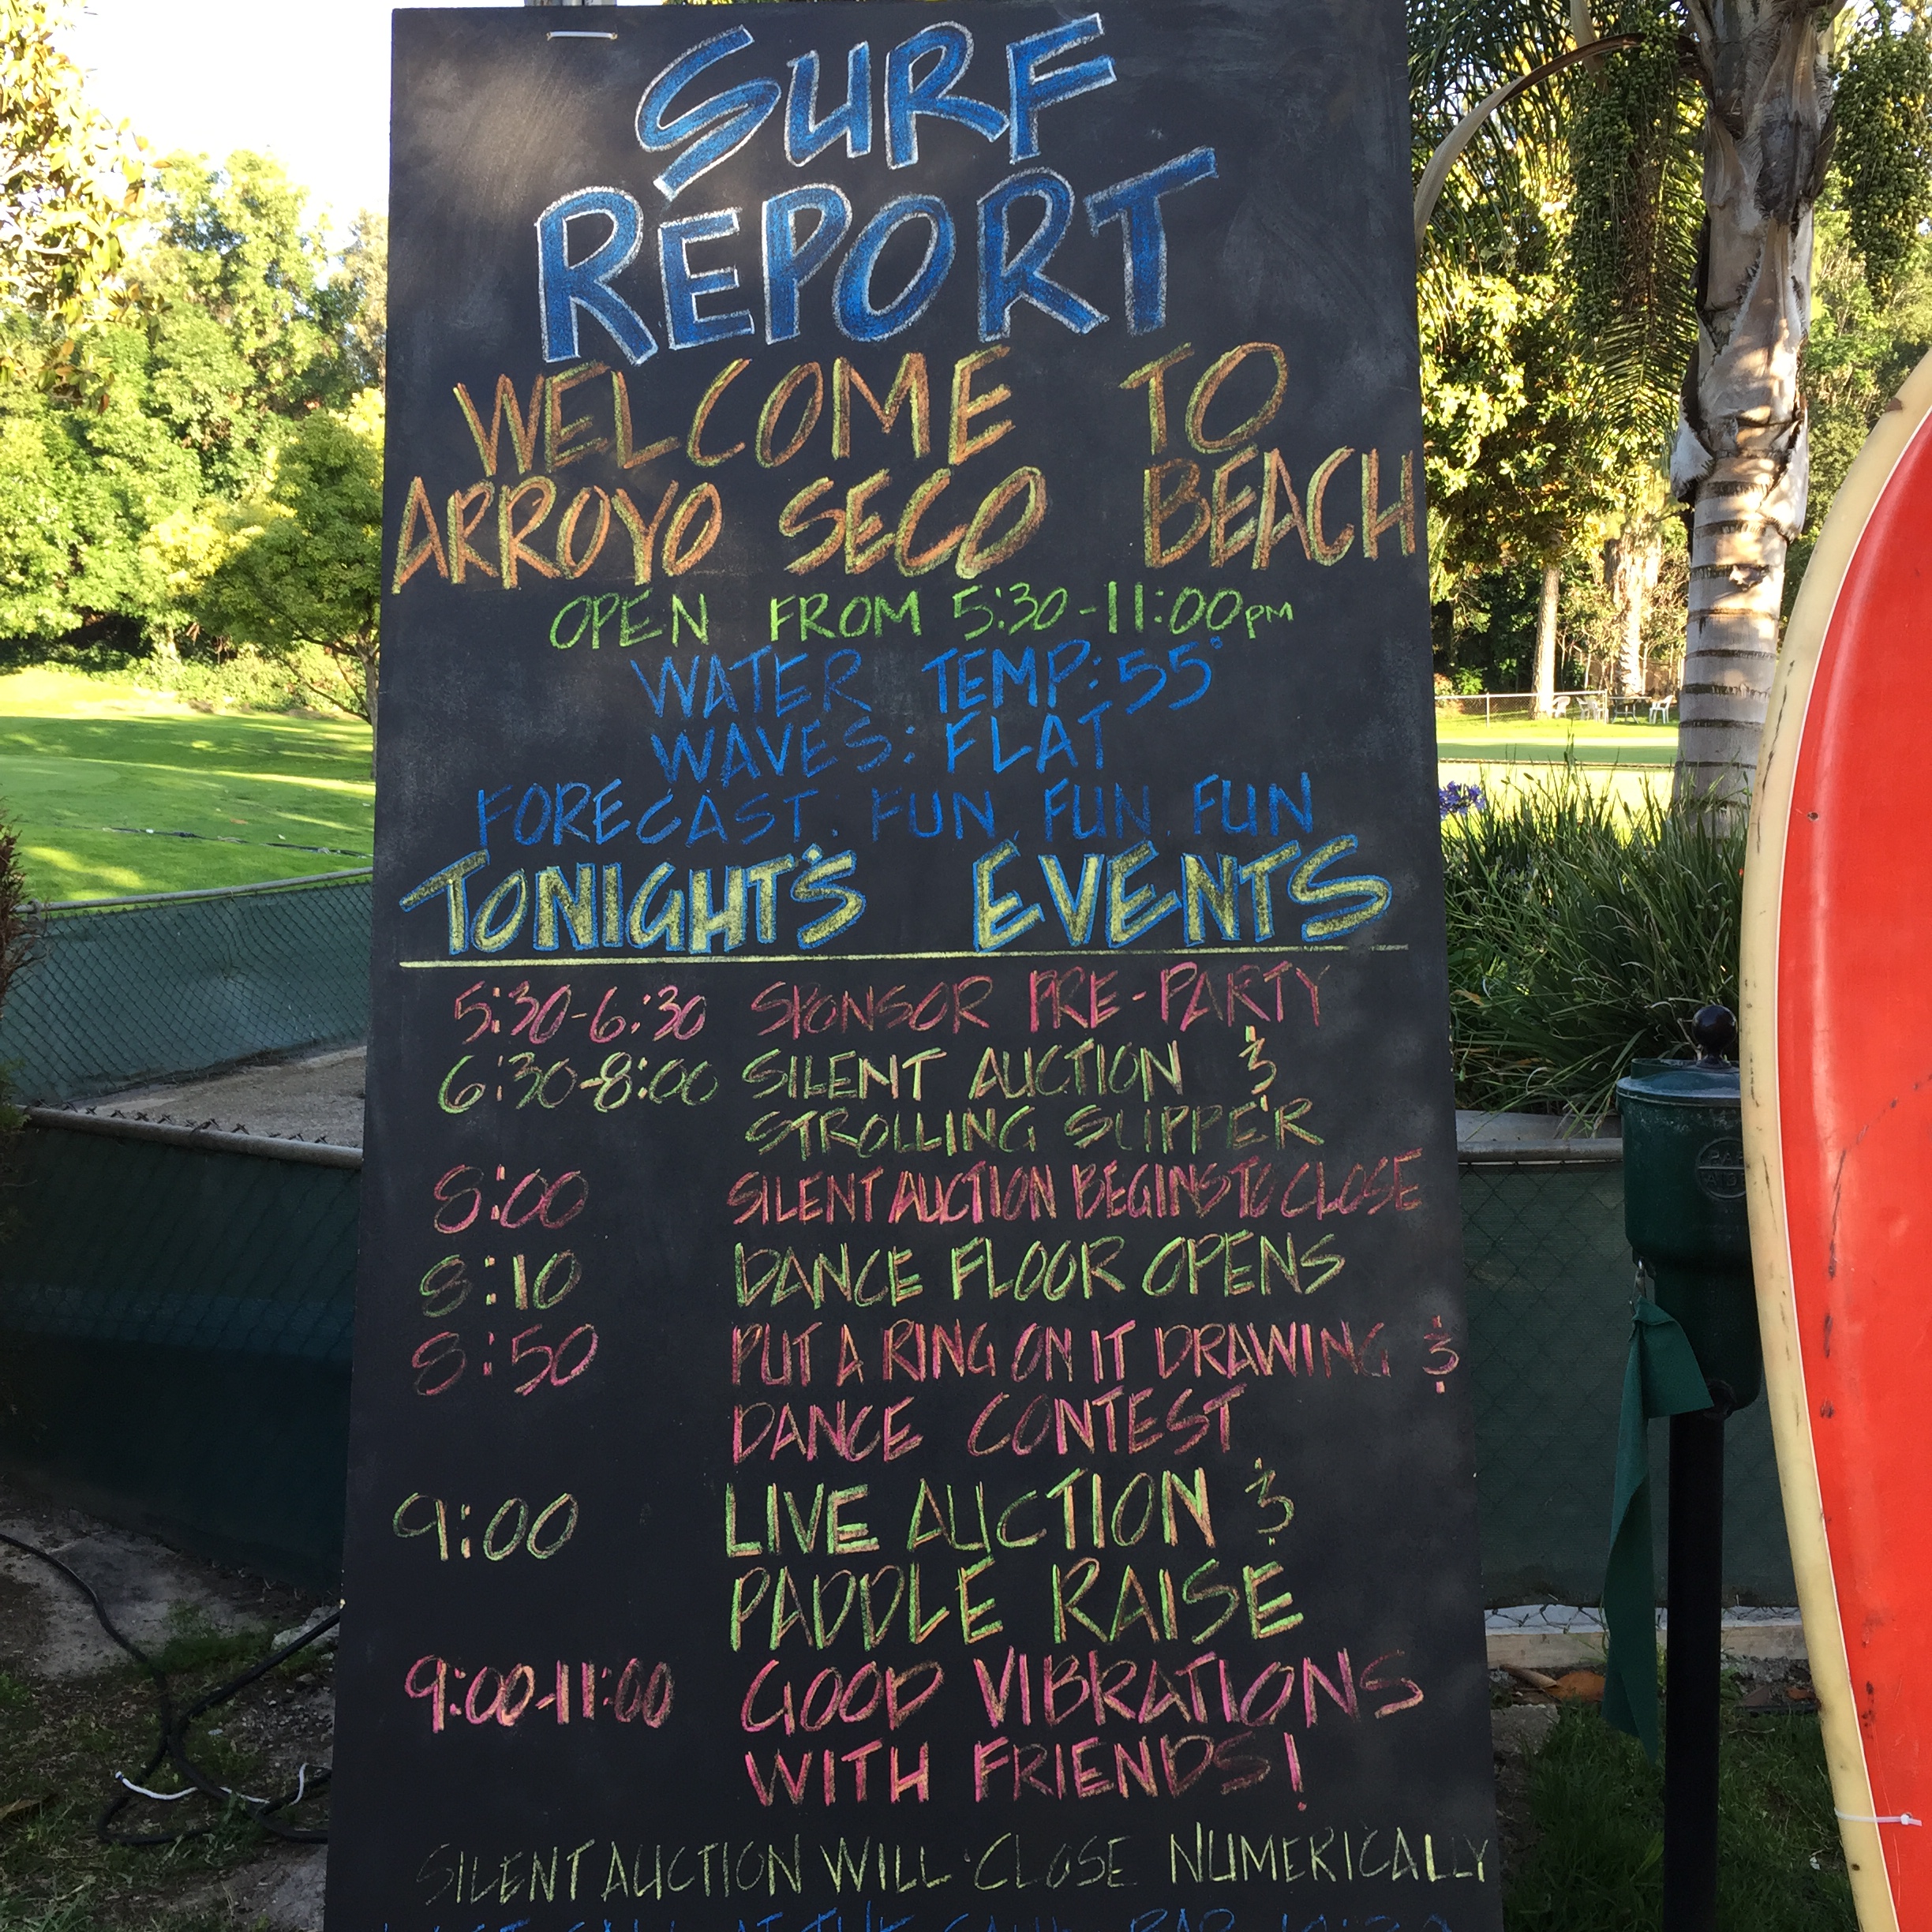 SURF
REPORT
WELCOME TO
ARROYO SECO BEACH
OPEN FROM 5:30-11:00PM
WATER TEMP: 55°
WAVES: FLAT
FORECAST: FUN, FUN, FUN
TONIGHT'S EVENTS
5:30-6:30 SPONSOR PRE-PARTY
6:30-8:00 SILENT AUCTION &
STROLLING SUPPER
8:00 SILENT AUCTION BEGINS TO CLOSE
8:10 DANCE FLOOR OPENS
8:50 PUT A RING ON IT DRAWING &
DANCE CONTEST
9:00 LIVE AUCTION &
PADDLE RAISE
9:00-11:00 GOOD VIBRATIONS
WITH FRIENDS!
SILENT AUCTION WILL CLOSE NUMERICALLY
LAST CALL AT THE BAR